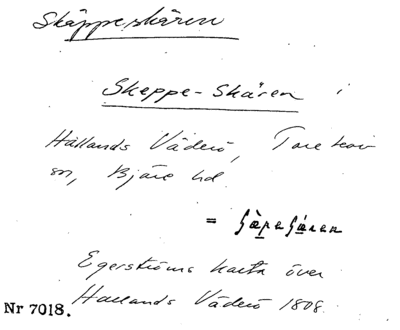 Skäppeskären
Skeppe-Skären i
Hallands Väderö, Torekov
sn, Bjäre hd.
=
Egerströms karta över
Hallands Väderö 1808
Nr 7018.